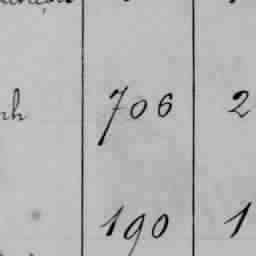 706 2
190 1